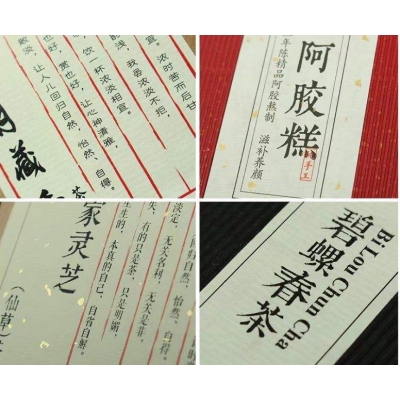 宜。浓时苦而后甘
浅，我喜浓淡不拒，
饮一杯浓淡相宜。
好，赏也好，让心神清雅，
散淡，让人儿回归自然，怡然、自得。
藏
茶
阿胶糕
手工
年陈精品阿胶熬制 滋补养颜
归自然、怡然、自得。
淡定，无关名利，无关是非。
失，有的只是茶，只是明媚，
生的，本真的自己，自省自解。
家灵芝
（仙草）
Bi Lou Chun Cha
碧螺春茶